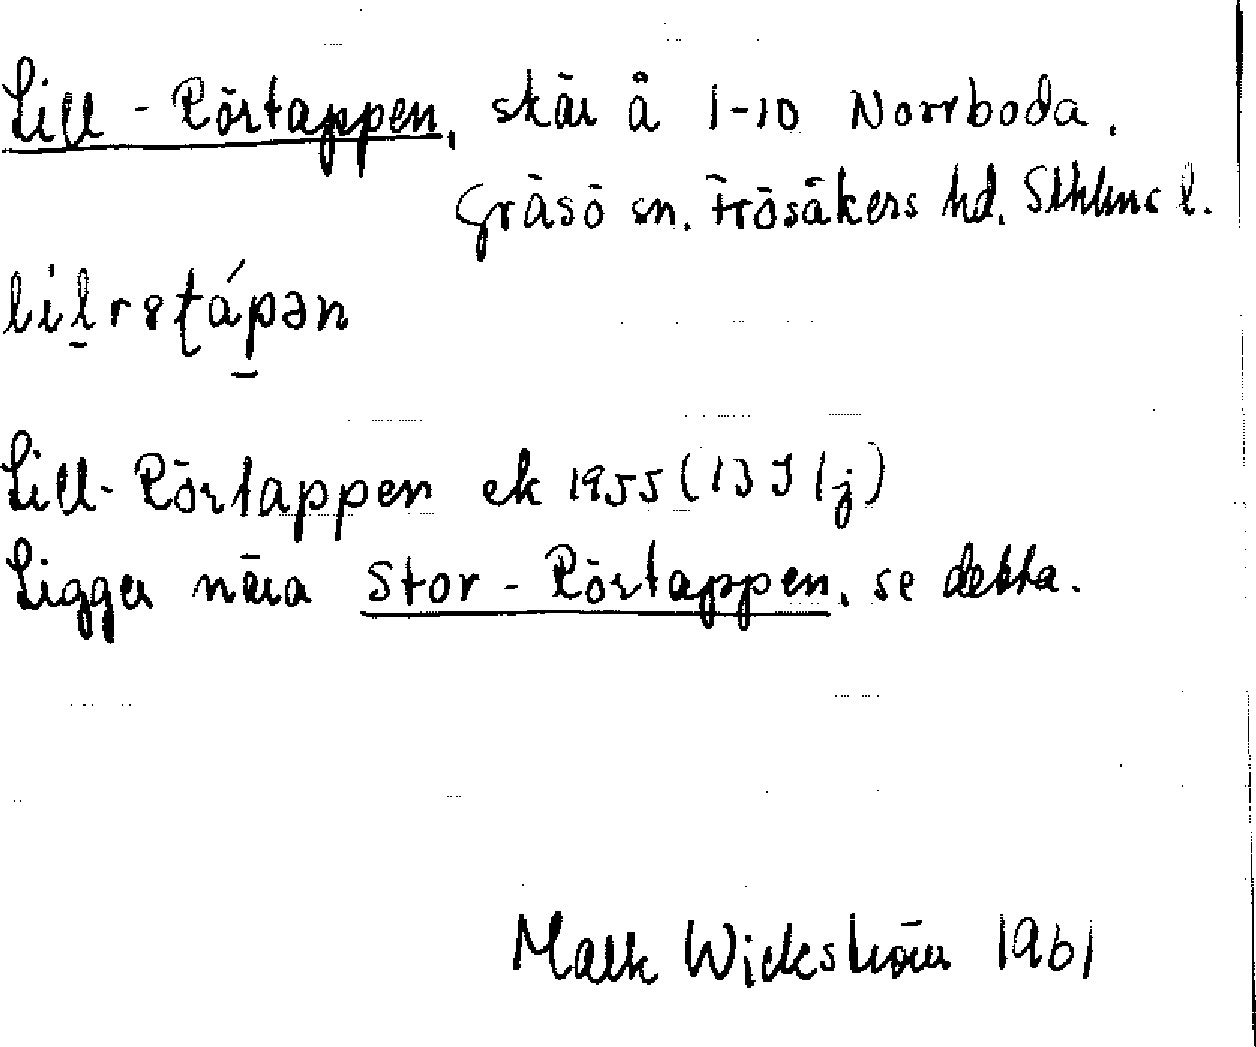 Lill-Rörtappen, skär å 1-10 Norrboda.
Gräsö sn. Frösåkers hd. Sthlms l.
Lill-Rörtappen ek 1955 (13 I 1j)
Ligger nära Stor-Rörtappen, se detta.
Wickström 1961